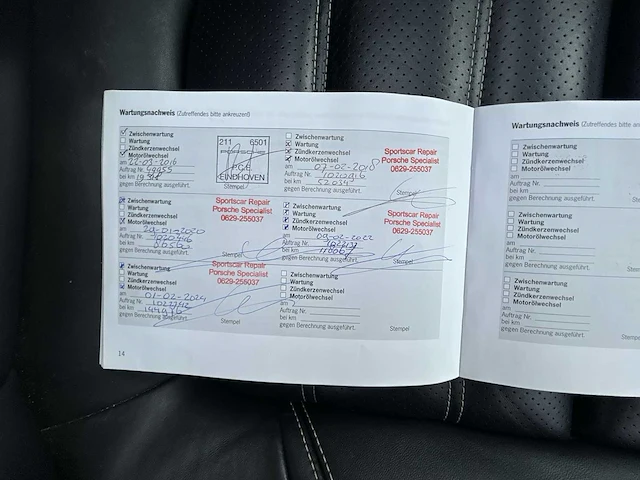 Wartungsnachweis (Zutreffendes bitte ankreuzen!)
Zwischenwartung
Wartung
Zündkerzenwechsel
Motorölwechsel
am 22-03-2016
Auftrag Nr. 49855
bei km
gegen Berechnung ausgeführt.
211 6501
PORSCHE
P.C.E.
EINDHOVEN
Stempel
Zwischenwartung
Wartung
Zündkerzenwechsel
Motorölwechsel
am 07-02-2018
Auftrag Nr.
bei km
gegen Berechnung ausgeführt.
Sportscar Repair
Porsche Specialist
0629-255037
Stempel
Zwischenwartung
Wartung
Zündkerzenwechsel
Motorölwechsel
am 29-01-2020
Auftrag Nr.
bei km
gegen Berechnung ausgeführt.
Sportscar Repair
Porsche Specialist
0629-255037
Stempel
Zwischenwartung
Wartung
Zündkerzenwechsel
Motorölwechsel
am 09-02-2022
Auftrag Nr.
bei km
gegen Berechnung ausgeführt.
Sportscar Repair
Porsche Specialist
0629-255037
Stempel
Zwischenwartung
Wartung
Zündkerzenwechsel
Motorölwechsel
am 01-02-2024
Auftrag Nr.
bei km
gegen Berechnung ausgeführt.
Sportscar Repair
Porsche Specialist
0629-255037
Stempel
Zwischenwartung
Wartung
Zündkerzenwechsel
Motorölwechsel
am
Auftrag Nr.
bei km
gegen Berechnung ausgeführt.
Stempel
14
Wartungsnachweis (Zutreffendes bitte an
Zwischenwartung
Wartung
Zündkerzenwechsel
Motorölwechsel
am
Auftrag Nr.
bei km
gegen Berechnung ausgeführt.
Zwischenwartung
Wartung
Zündkerzenwechsel
Motorölwechsel
am
Auftrag Nr.
bei km
gegen Berechnung ausgeführt.
Zwischenwartung
Wartung
Zündkerzenwechsel
Motorölwechsel
am
Auftrag Nr.
bei km
gegen Berechnung ausgeführt.